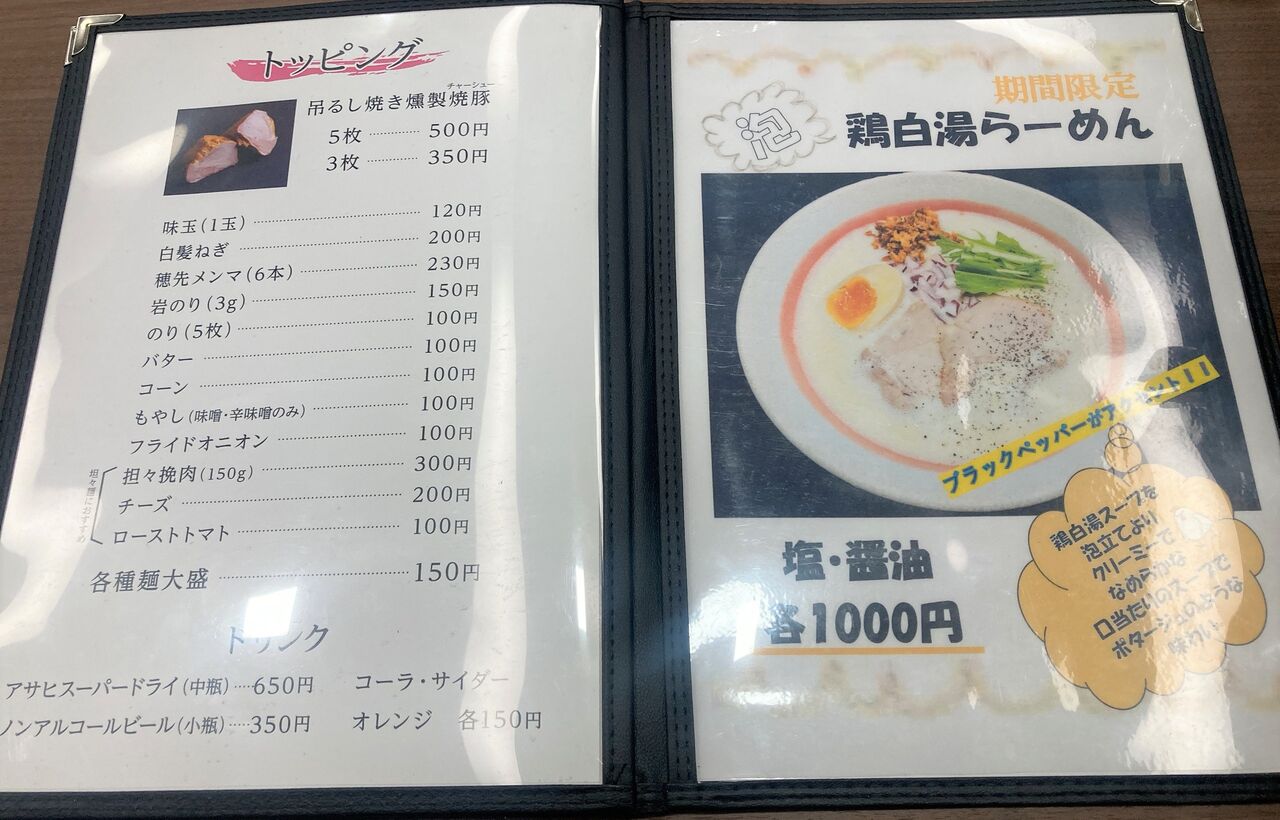 トッピング
チャーシュー
吊るし焼き燻製焼豚
5枚 ………… 500円
3枚 ………… 350円
味玉(1玉) ………… 120円
白髪ねぎ ………… 200円
穂先メンマ(6本) ………… 230円
岩のり(3g) ………… 150円
のり(5枚) ………… 100円
バター ………… 100円
コーン ………… 100円
もやし(味噌・辛味噌のみ) ………… 100円
フライドオニオン ………… 100円
坦々麺におすすめ
担々挽肉(150g) ………… 300円
チーズ ………… 200円
ローストトマト ………… 100円
各種麺大盛 ………… 150円
ドリンク
アサヒスーパードライ(中瓶) …… 650円
ノンアルコールビール(小瓶) …… 350円
コーラ・サイダー
オレンジ 各150円
期間限定
泡 鶏白湯らーめん
ブラックペッパーがアクセント!!
塩・醤油
各1000円
鶏白湯スープを
泡立てよい
クリーミーで
なめらかな
口当たいのスープで
ポタージュのような
味わい